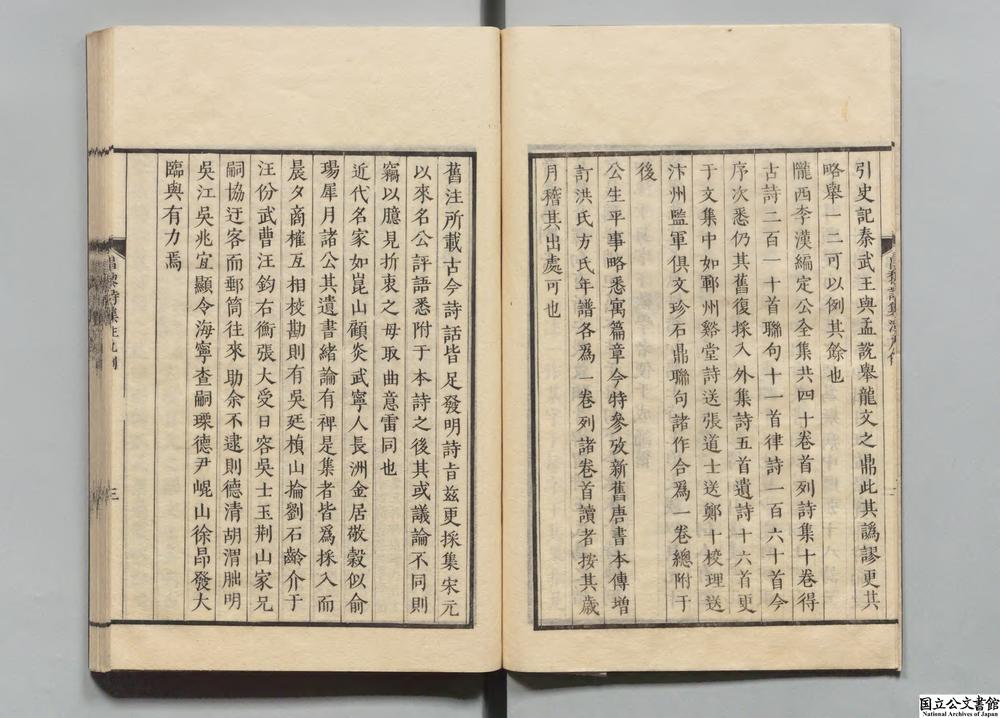 引史記秦武王與孟說舉龍文之鼎此其譌謬更其
略舉一二可以例其餘也
隴西李漢編定公全集共四十卷首列詩集十卷得
古詩二百一十首聯句十一首律詩一百六十首今
序次悉仍其舊復採入外集詩五首遺詩十六首更
于文集中如鄆州谿堂詩送張道士送鄭十校理送
汴州監軍俱文珍石鼎聯句諸作合爲一卷總附于
後
公生平事略悉寓篇章今特參攷新舊唐書本傳增
訂洪氏方氏年譜各爲一卷列諸卷首讀者按其歲
月稽其出處可也
舊注所載古今詩話皆足發明詩㫖兹更採集宋元
以來名公評語悉附于本詩之後其或議論不同則
竊以臆見折衷之毋取曲意雷同也
近代名家如崑山顧炎武寧人長洲金居敬穀似俞
瑒犀月諸公其遺書緒論有裨是集者皆爲採入而
晨夕商榷互相校勘則有吳廷楨山掄劉石齡介于
汪份武曹汪鈞右衡張大受日容吳士玉荆山家兄
嗣協迂客而郵筒往來助余不逮則德清胡渭朏明
吳江吳兆宜顯令海寧查嗣瑮德尹崐山徐昂發大
臨與有力焉
昌黎詩集注凡例
三
国立公文書館
National Archives of Japan